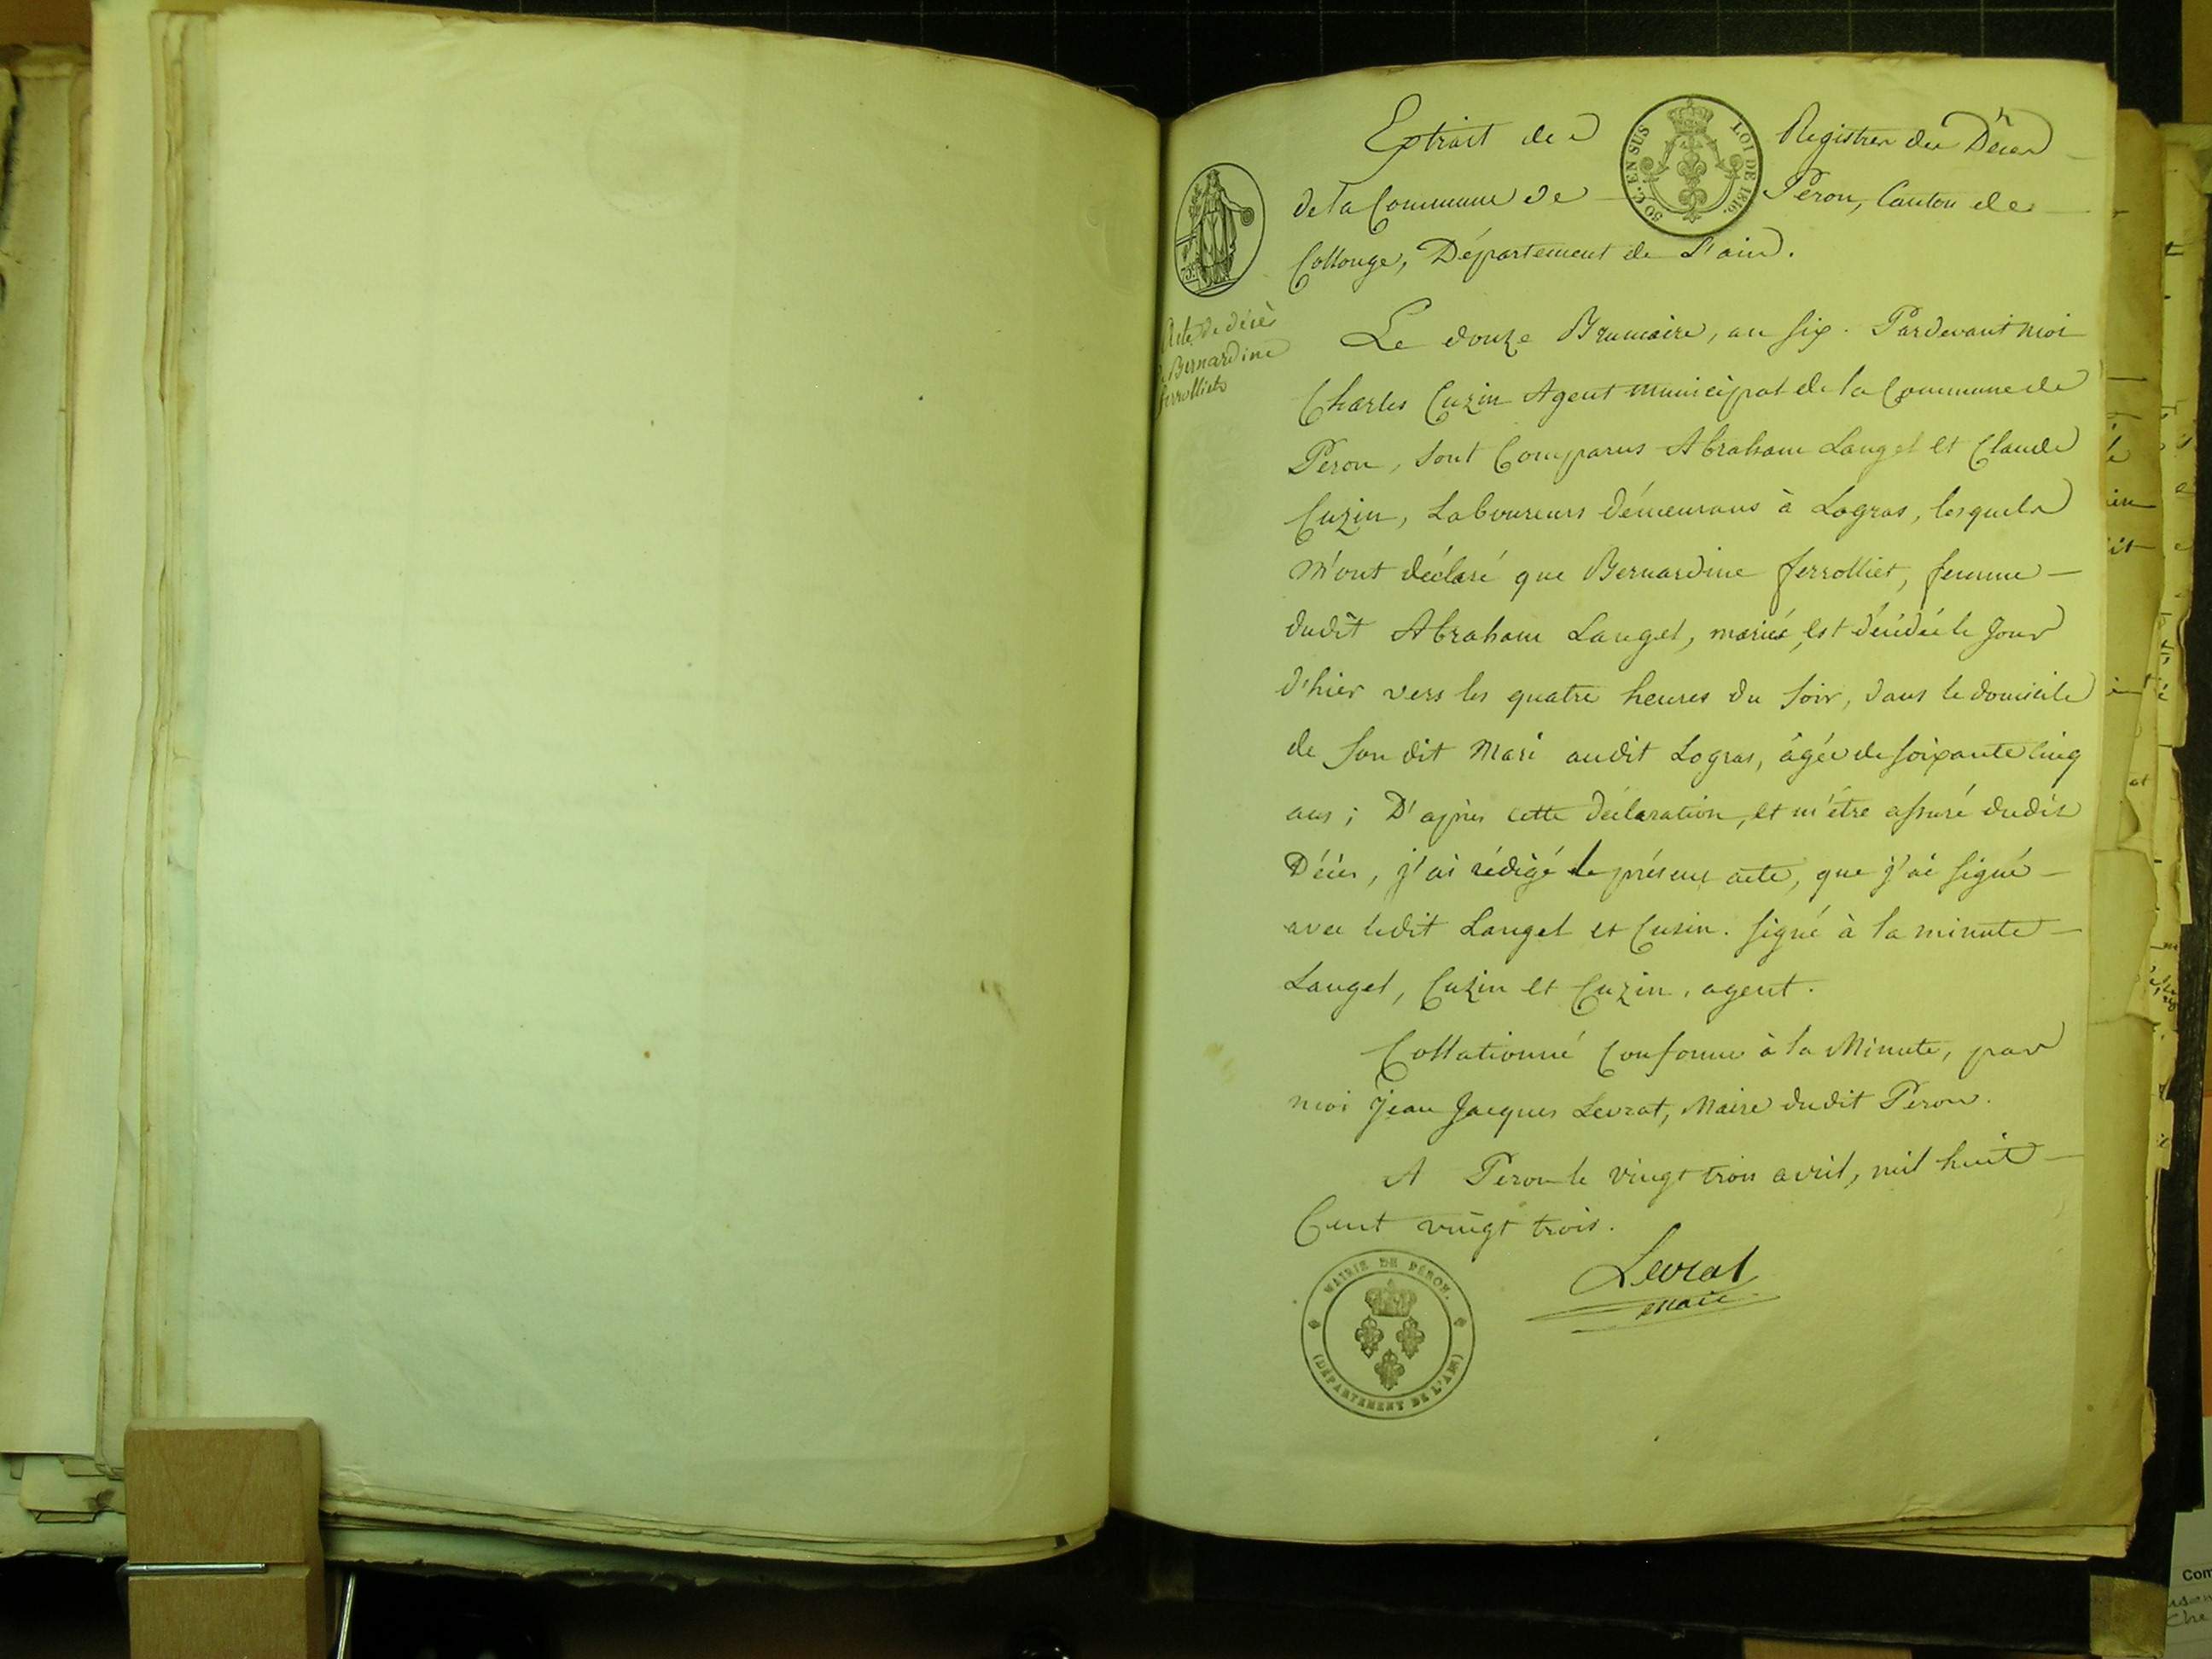 Extrait des Registres des Décès
50 C. EN SUS LOI DE 1816.
de la Commune de Péron, Canton de
Collonge, Département de L'ain.
Acte de décès
de Bernardine
ferrolliet
Le douze Brumaire, an six. Pardevant moi
Charles Cuzin Agent municipal de la Commune de
Péron, sont Comparus Abraham Langel et Claude
Cuzin, Laboureurs démeurans à Logras, lesquels
M'ont déclaré que Bernardine ferrolliet, femme —
dudit Abraham Langel, mariés, est décédée le Jour
d'hier vers les quatre heures du soir, dans le domicile
de son dit Mari audit Logras, âgée de soixante cinq
ans ; D'après cette déclaration, et m'être assuré dudit
Décès, j'ai rédigé le présent acte, que j'ai signé —
avec ledit Langel et Cusin. signé à la minute —
Langel, Cuzin et Cuzin, agent.
Collationné Conforme à la Minute, par
moi Jean Jacques Levrat, Maire dudit Péron.
A Péron le vingt trois avril, mil huit —
Cent vingt trois.
Levrat
maire
MAIRIE DE PÉRON.
(DÉPARTEMENT DE L'AIN)